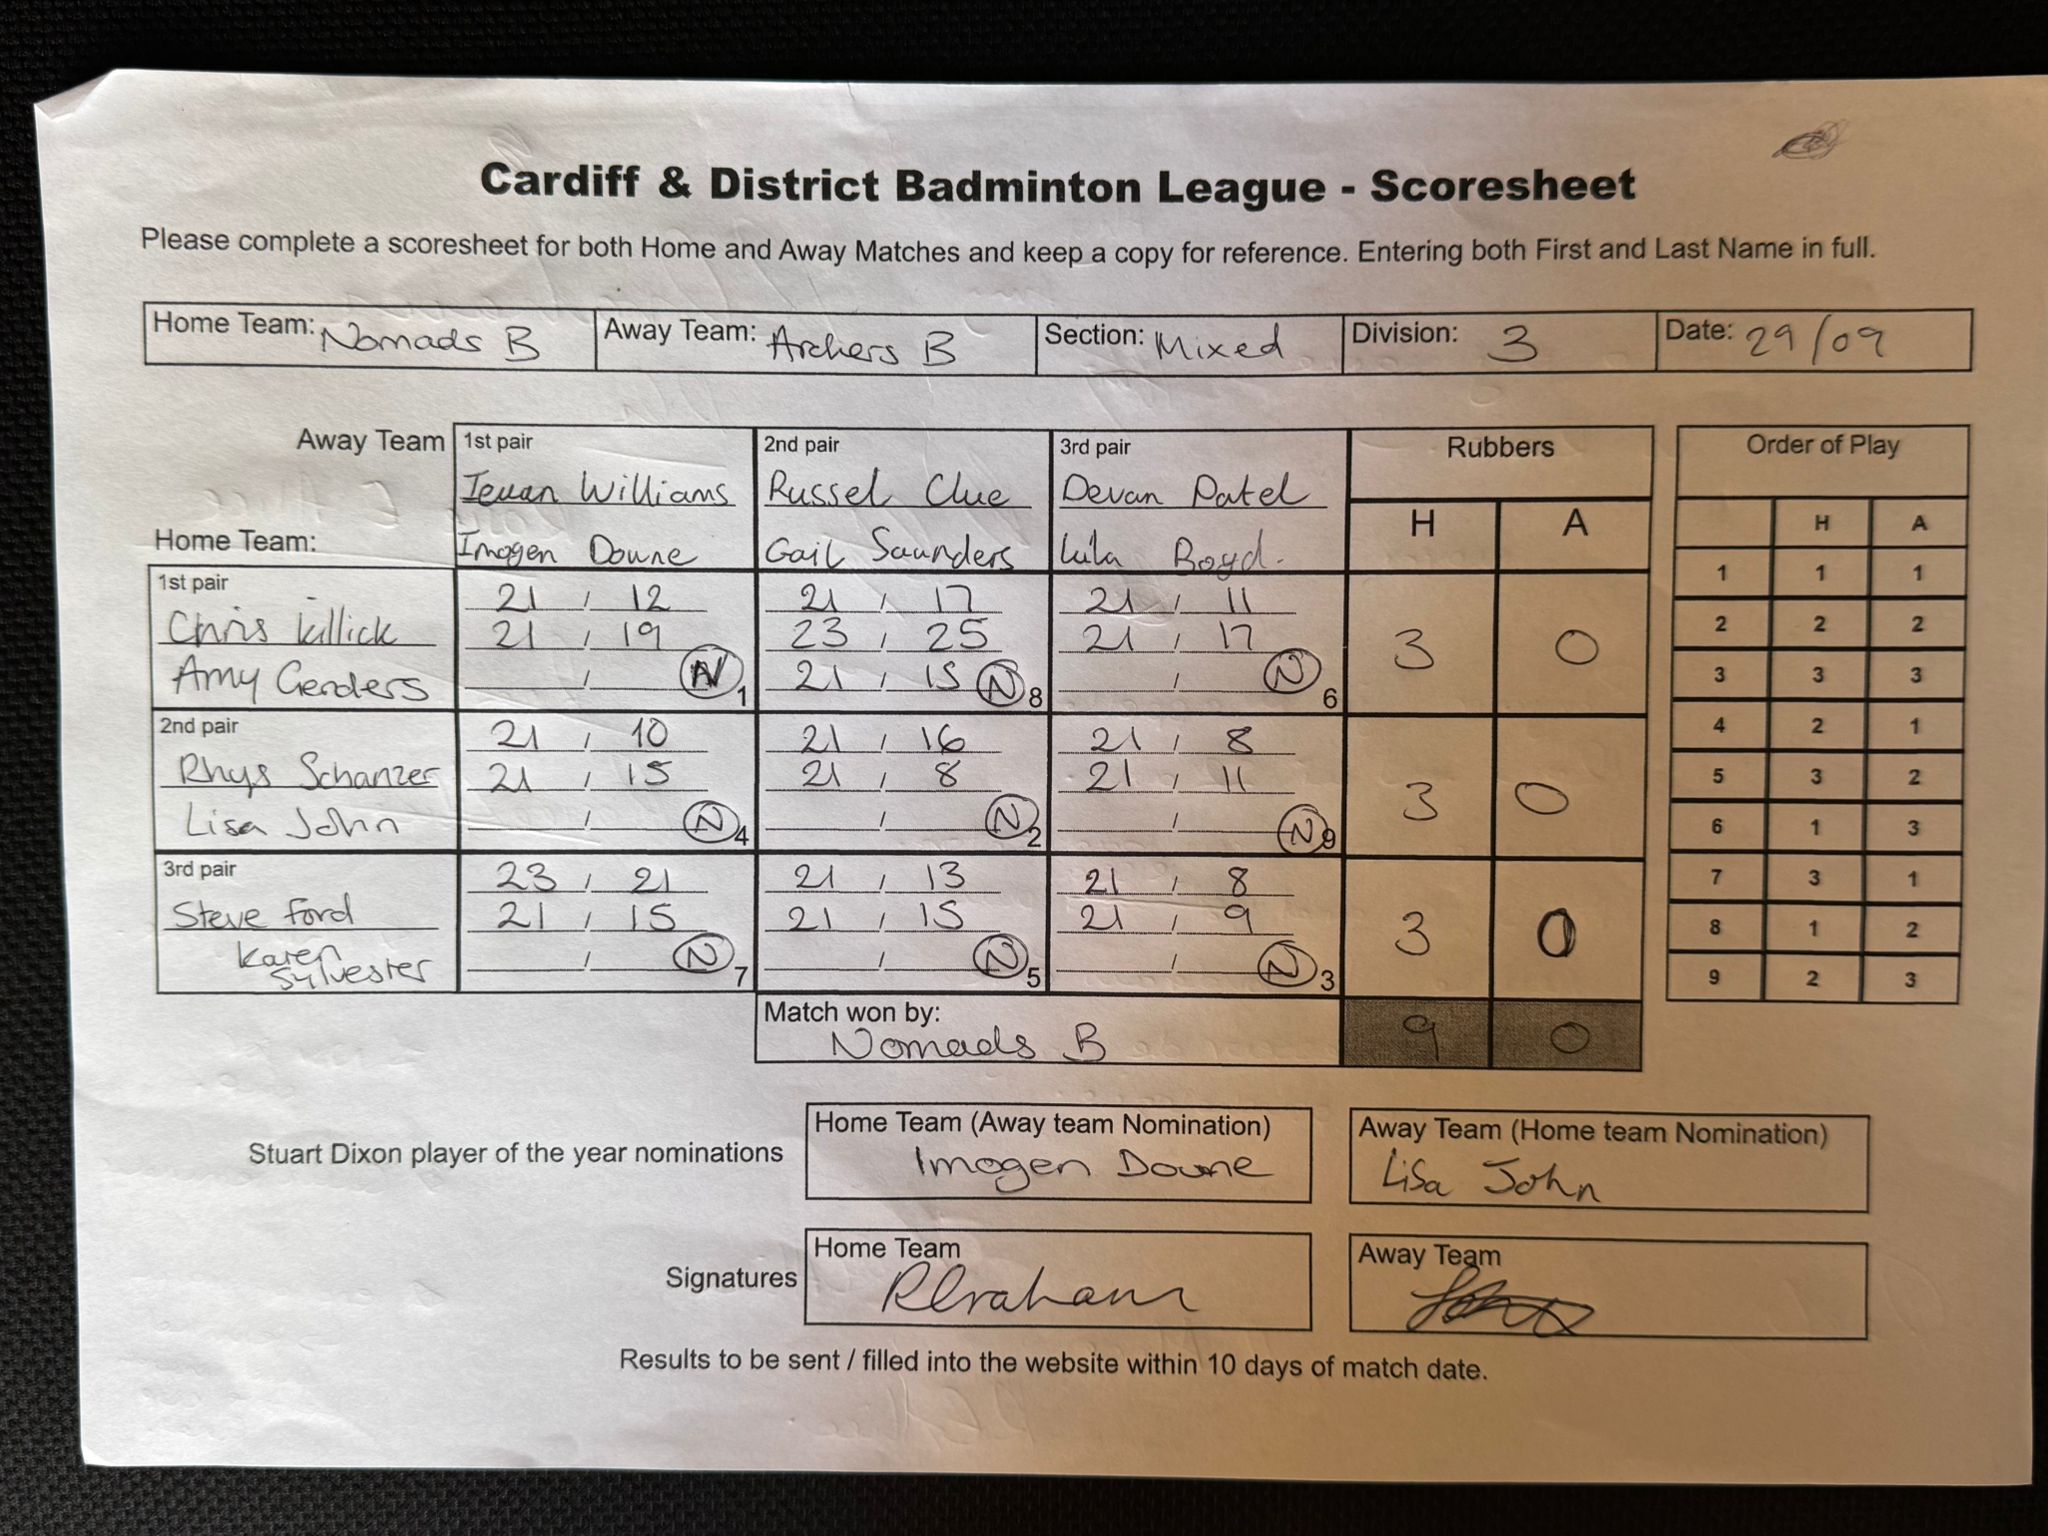 Cardiff & District Badminton League - Scoresheet
Please complete a scoresheet for both Home and Away Matches and keep a copy for reference. Entering both First and Last Name in full.
Home Team: Nomads B Away Team: Archers B Section: Mixed Division: 3 Date: 29/09
Away Team 1st pair 2nd pair 3rd pair Rubbers Order of Play
Ieuan Williams Russel Clue Devan Patel
H A H A
Home Team: Imogen Doune Gail Saunders Lula Boyd.
1 1 1
1st pair 21 , 12 21 , 17 21 , 11
Chris Killick 21 , 19 23 , 25 21 , 17 3 0
2 2 2
Amy Genders , N 1 21 , 15 N 8 , N 6
3 3 3
2nd pair 21 , 10 21 , 16 21 , 8
4 2 1
Rhys Schanzer 21 , 15 21 , 8 21 , 11 3 0
5 3 2
Lisa John , N 4 , N 2 , N 9
6 1 3
3rd pair 23 , 21 21 , 13 21 , 8
7 3 1
Steve Ford 21 , 15 21 , 15 21 , 9 3 0
8 1 2
Karen
Sylvester , N 7 , N 5 , N 3
9 2 3
Match won by:
Nomads B 9 0
Stuart Dixon player of the year nominations
Home Team (Away team Nomination)
Imogen Doune
Away Team (Home team Nomination)
Lisa John
Signatures
Home Team
Away Team
Results to be sent / filled into the website within 10 days of match date.